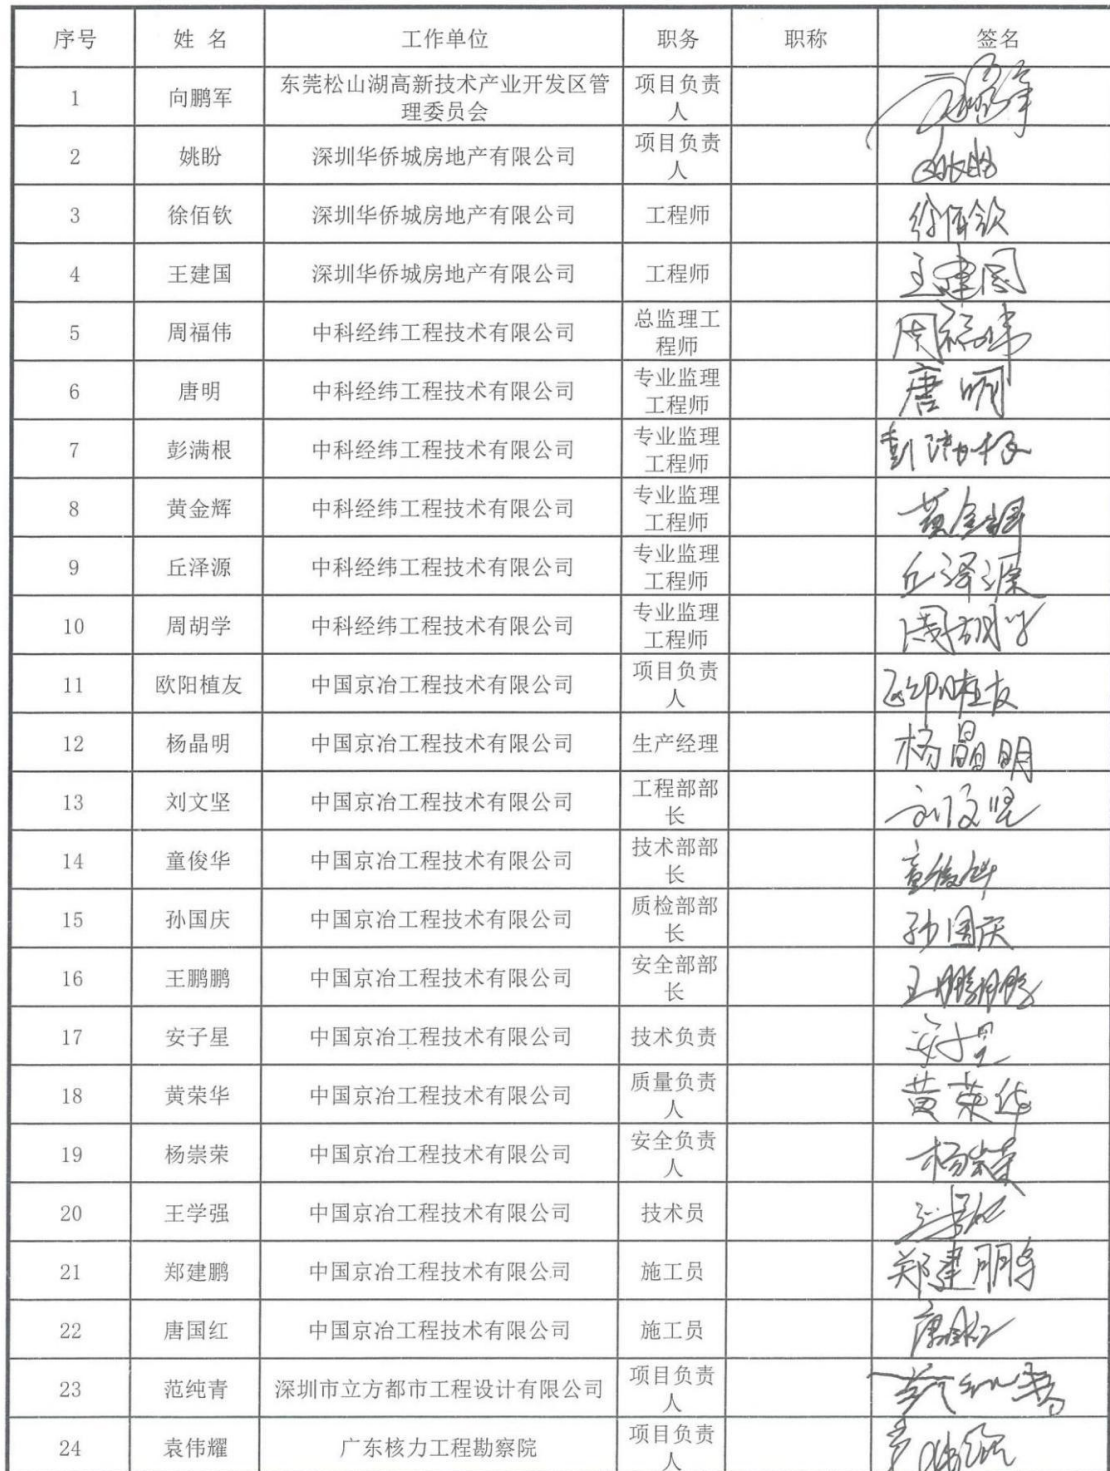 序号 姓 名 工作单位 职务 职称 签名
1 向鹏军 东莞松山湖高新技术产业开发区管 项目负责
理委员会 人
2 姚盼 深圳华侨城房地产有限公司 项目负责
人 姚盼
3 徐佰钦 深圳华侨城房地产有限公司 工程师 徐佰钦
4 王建国 深圳华侨城房地产有限公司 工程师 王建国
5 周福伟 中科经纬工程技术有限公司 总监理工
程师 周福伟
6 唐明 中科经纬工程技术有限公司 专业监理
工程师 唐明
7 彭满根 中科经纬工程技术有限公司 专业监理
工程师 彭满根
8 黄金辉 中科经纬工程技术有限公司 专业监理
工程师 黄金辉
9 丘泽源 中科经纬工程技术有限公司 专业监理
工程师 丘泽源
10 周胡学 中科经纬工程技术有限公司 专业监理
工程师 周胡学
11 欧阳植友 中国京冶工程技术有限公司 项目负责
人 欧阳植友
12 杨晶明 中国京冶工程技术有限公司 生产经理 杨晶明
13 刘文坚 中国京冶工程技术有限公司 工程部部
长 刘文坚
14 童俊华 中国京冶工程技术有限公司 技术部部
长 童俊华
15 孙国庆 中国京冶工程技术有限公司 质检部部
长 孙国庆
16 王鹏鹏 中国京冶工程技术有限公司 安全部部
长 王鹏鹏
17 安子星 中国京冶工程技术有限公司 技术负责 安子星
18 黄荣华 中国京冶工程技术有限公司 质量负责
人 黄荣华
19 杨崇荣 中国京冶工程技术有限公司 安全负责
人 杨崇荣
20 王学强 中国京冶工程技术有限公司 技术员
21 郑建鹏 中国京冶工程技术有限公司 施工员 郑建鹏
22 唐国红 中国京冶工程技术有限公司 施工员 唐国红
23 范纯青 深圳市立方都市工程设计有限公司 项目负责
人
24 袁伟耀 广东核力工程勘察院 项目负责
人